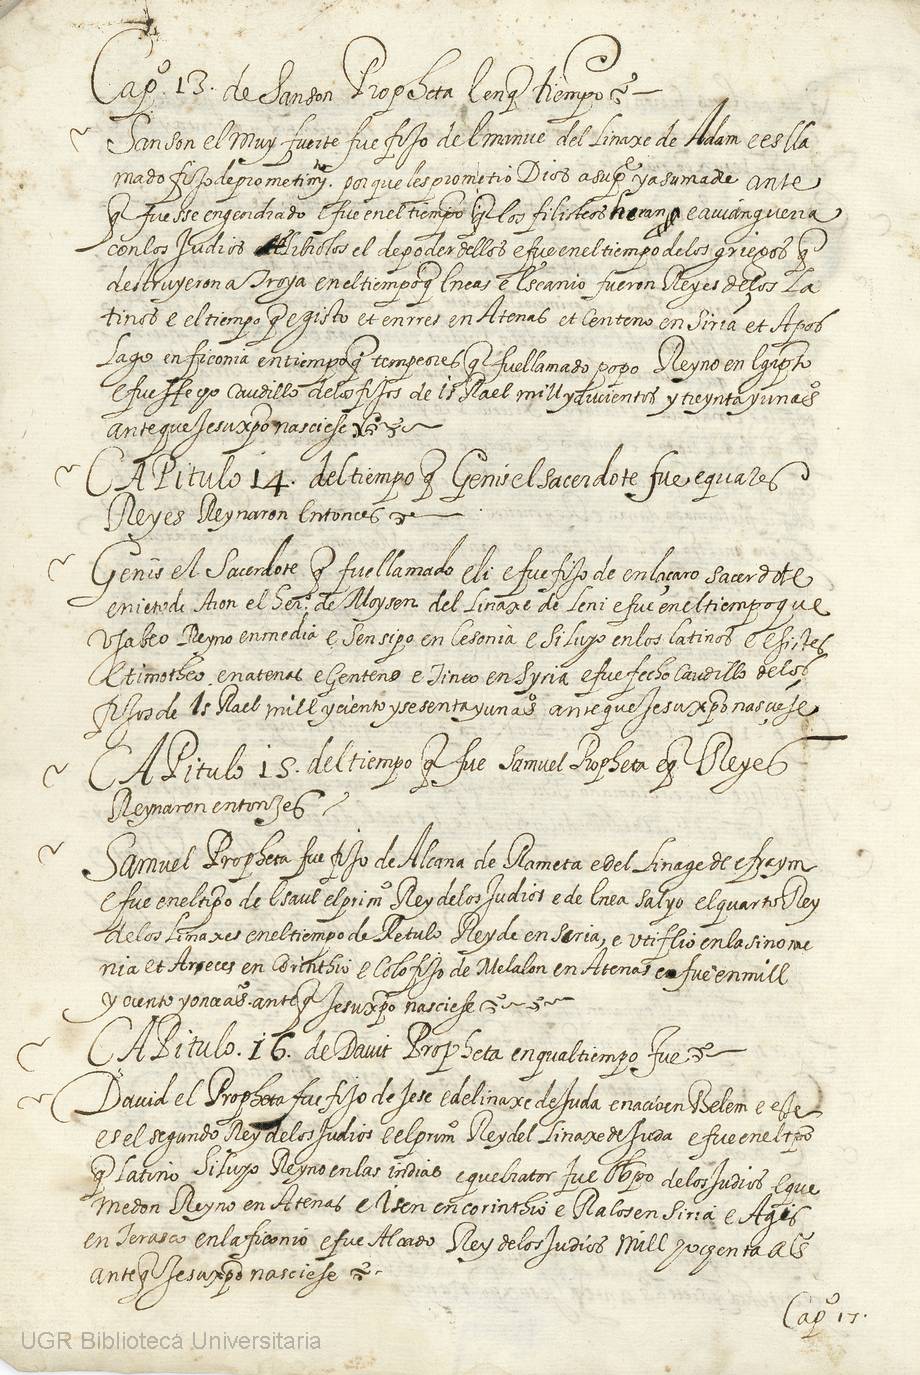 Capº. 13. de Sanson Propheta l enq̃ tiempo
Sanson el Muy fuerte fue fijo del manue del Linaxe de Adam e es lla
mado fijo de prometimyº. porque les prometio Dios a su pẽ y a su made ante
q̃ fuesse engendrado e fue en el tiempo q̃ los filisteos heran e avian guerra
con los Judios libiolos el de poder dellos e fue en el tiempo de los griexos q̃
destruyeron a Troya en el tiempo q̃ eneas e escanio fueron Reyes de los La
tinos e el tiempo q̃ egisto et enrres en Atenas et Centeno en Siria et Apos
Lago en ficonia en tiempo q̃ tempeores q̃ fue llamado popo Reyno en Egipto
e fue Caudillo de los fijos de isRael mill y ducientos y treynta y un aºs
ante que Jesuxpõ nasciese
CAPitulo 14. del tiempo q̃ Genis el sacerdote fue e quales
Reyes Reynaron Entonces
Genis el Sacerdote q̃ fue llamado eli e fue fijo de enlaçaro sacerdote
e nieto de Aron el Herº. de Moysen del Linaxe de Leui e fue en el tiempo que
Vsabeo Reyno en media e Sensipo en Cesonia e Siluyo en los latinos
timotheo en atenas e Genteno e Tineo en Syria e fue fecho Caudillo de los
fijos de IsRael mill y ciento y sesenta y un aºs ante que Jesuxpõ nasciese
CAPitulo 15. del tiempo q̃ fue Samuel Propheta e q̃ Reyes
Reynaron entonzes
Samuel Propheta fue fijo de Alcana de Rameta e del Linage de efraym
e fue en el tipõ de l saul el primº Rey de los Judios e de Enea Salyo el quarto Rey
de los Linaxes en el tiempo de Retulo Rey de en Soria, e vtiflio en la sinome
nia et Areces en Corinthio e Colo fijo de Melalon en Atenas e fue en mill
y ciento y once aºs. ante q̃ Jesuxpõ nasciese
CAPitulo. 16. de Dauit Propheta en qual tiempo fue
Dauid el Propheta fue fijo de Jese e del linaxe de Juda e nacio en Belem e este
es el segundo Rey de los Judios e el primº Rey del Linaxe de Juda e fue en el tpõ
q̃ Latino Siluyo Reyno en las indias e quebiator fue Obpo de los Judios e que
medon Reyno en Atenas e Isen en corinthio e Ralos en Siria e Agis
en Terasco en la ficonio e fue Alçado Rey de los Judios Mill y oçenta aºs
ante q̃ Jesuxpõ nasciese
Capº 17.
UGR Biblioteca Universitaria